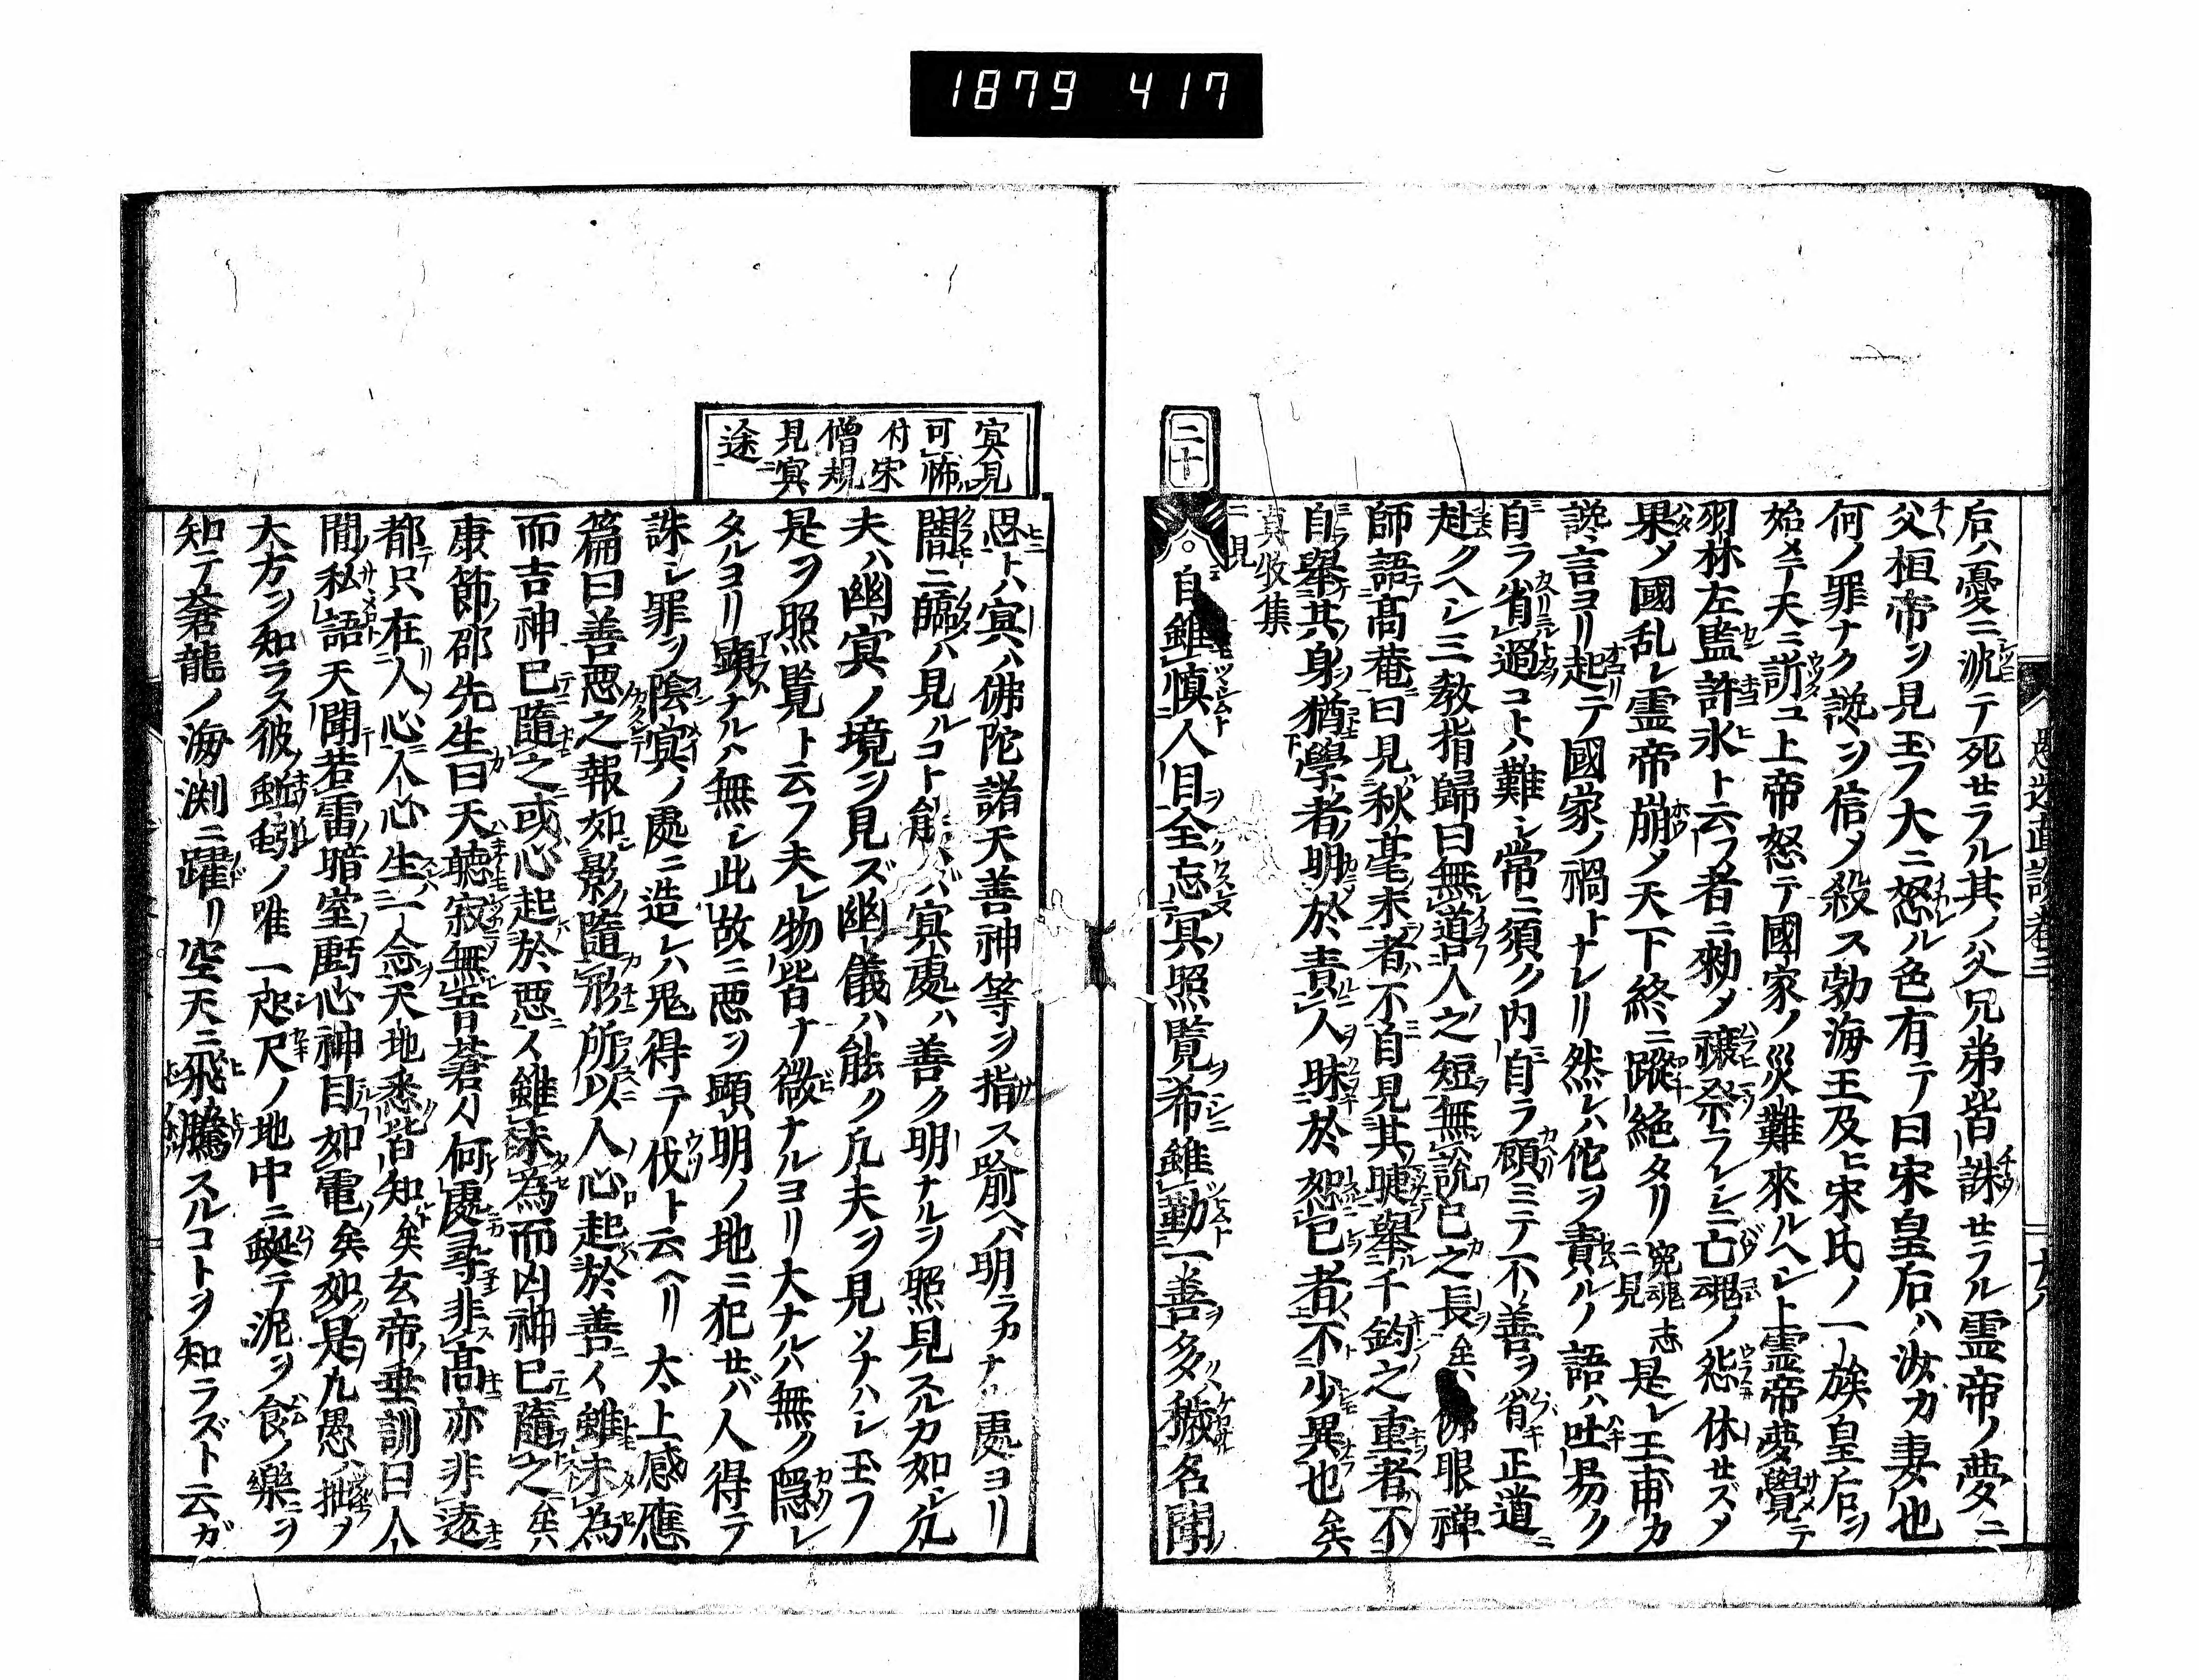 1879 417
愚迷直談巻三
后ハ憂ニ沈テ死セラル其ノ父兄弟皆誅セラル霊帝ノ夢ニ
父桓帝ヲ見玉フ大ニ怒ル色有テ曰宋皇后ハ汝カ妻也
何ノ罪ナク讒ヲ信メ殺ス勃海王及ヒ宋氏ノ一族皇后ヲ
始メニ天ニ訴コ上帝怒テ國家ノ災難來ルヘシト霊帝夢覺テ
羽林左監許永ト云フ者ニ勅メ禳祭ラレシニ亡魂ノ怨休セズメ
果メ國乱レ霊帝崩メ天下終ニ蹤絶タリ冤魂志ニ見是レ王甫カ
讒言ヨリ起テ國家ノ禍トナレリ然レハ佗ヲ責ルノ語ハ吐易ク
自ラ省過コトハ難シ常ニ須ク内自ラ顧ミテ不善ヲ省キ正道ニ
赴クヘシ三教指歸曰無道人之短無説己之長矣佛眼禅
師語高菴曰見秋毫末者不自見其睫舉千鈞之重者不
自舉其身猶學者明於責人昧於恕已者不少異也矣
真收集ニ見
二十
自雖慎人目全忘冥照覧希雖勤一善多穢名聞
冥見
可怖
付宋
僧規
見冥
途
恩トハ冥ハ佛陀諸天善神等ヲ指ス喩ヘハ明ラカナル處ヨリ
闇ニ臨ハ見ルコト能ハズ冥處ハ善ク明ナルヲ照見スルカ如レ凡
夫ハ幽冥ノ境ヲ見ズ幽儀ハ能ク凡夫ヲ見ソナハシ玉フ
是ヲ照覧ト云フ夫レ物皆ナ微ナルヨリ大ナルハ無ク隠レ
タルヨリ顕ナルハ無レ此故ニ悪ヲ顕明ノ地ニ犯セバ人得テ
誅シ罪ヲ陰冥ノ處ニ造レハ鬼得テ伐ト云ヘリ太上感應
篇曰善悪之報如影隨形所以人心起於善ス雖未為
而吉神已隨之或心起於悪ス雖未為而凶神已隨之矣
康節邵先生曰天聴寂無音蒼々何處尋非高亦非遠
都只在人心人心生一念天地悉皆知矣玄帝垂訓曰人
間私語天聞若雷暗室虧心神目如電矣如是九愚ハ拙メ
大方ヲ知ラス彼蚯蚓ノ唯一咫尺ノ地中ニ蜒テ泥ヲ食ノ樂ニヲ
知テ蒼龍ノ海渊ニ躍リ空天ニ飛騰スルコトヲ知ラズト云ガ